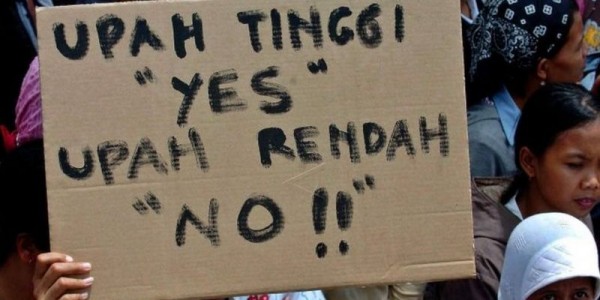 UPAH TINGGI
"YES"
UPAH RENDAH
"NO!!"